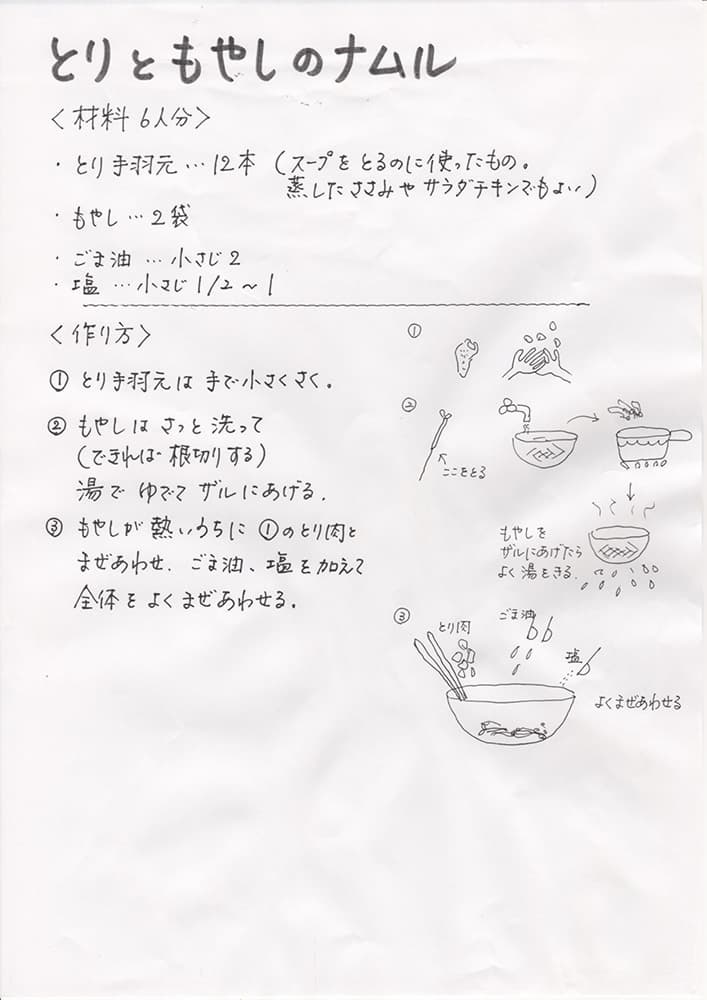 とりともやしのナムル
〈材料 6人分〉
・とり手羽元…12本（スープをとるのに使ったもの。
蒸したささみやサラダチキンでもよい）
・もやし…2袋
・ごま油…小さじ2
・塩…小さじ1/2〜1
〈作り方〉
① とり手羽元は手で小さくさく。
② もやしはさっと洗って
（できれば根切りする）
湯でゆでてザルにあげる.
③ もやしが熱いうちに①のとり肉と
まぜあわせ. ごま油、塩を加えて
全体をよくまぜあわせる.
①
②
ここをとる
もやしを
ザルにあげたら
よく湯をきる.
③
とり肉
ごま油
塩
よくまぜあわせる